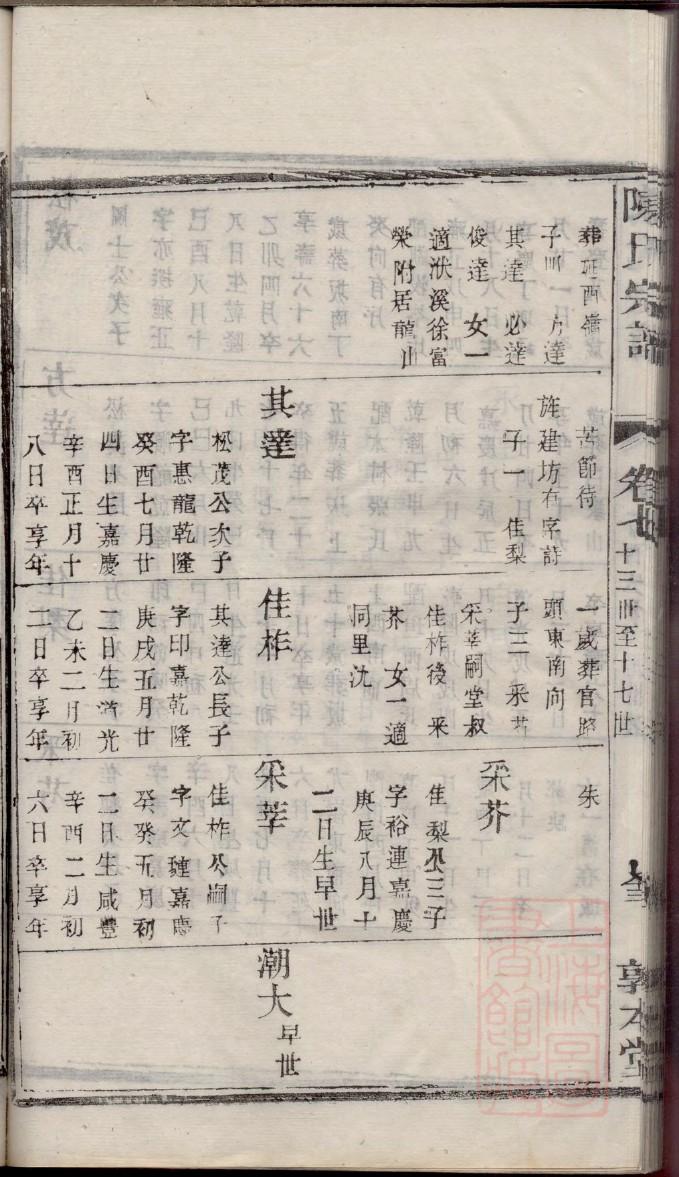 陳氏宗譜
卷七
十三世至十七世
敦本堂
葬
西嶺
子四 方達
其達 必達
俊達 女一
適洑溪徐富
榮附居龍山
苦節待
旌建坊有字詩
子一 佳梨
其達
松茂公次子
字惠龍乾隆
癸酉七月廿
四日生嘉慶
辛酉正月十
八日卒享年
一歲葬官路
頭東南向
子三 采芳
采莘嗣堂叔
佳柞後 采
芥 女一適
同里沈
佳柞
其達公長子
字印嘉乾隆
庚戌五月廿
一日生道光
乙未二月初
二日卒享年
朱
采芥
佳梨公三子
字裕連嘉慶
庚辰八月十
二日生早世
采莘
佳柞公嗣子
字文璉嘉慶
癸
五月初
二日生咸豐
辛酉二月初
六日卒享年
潮大早世